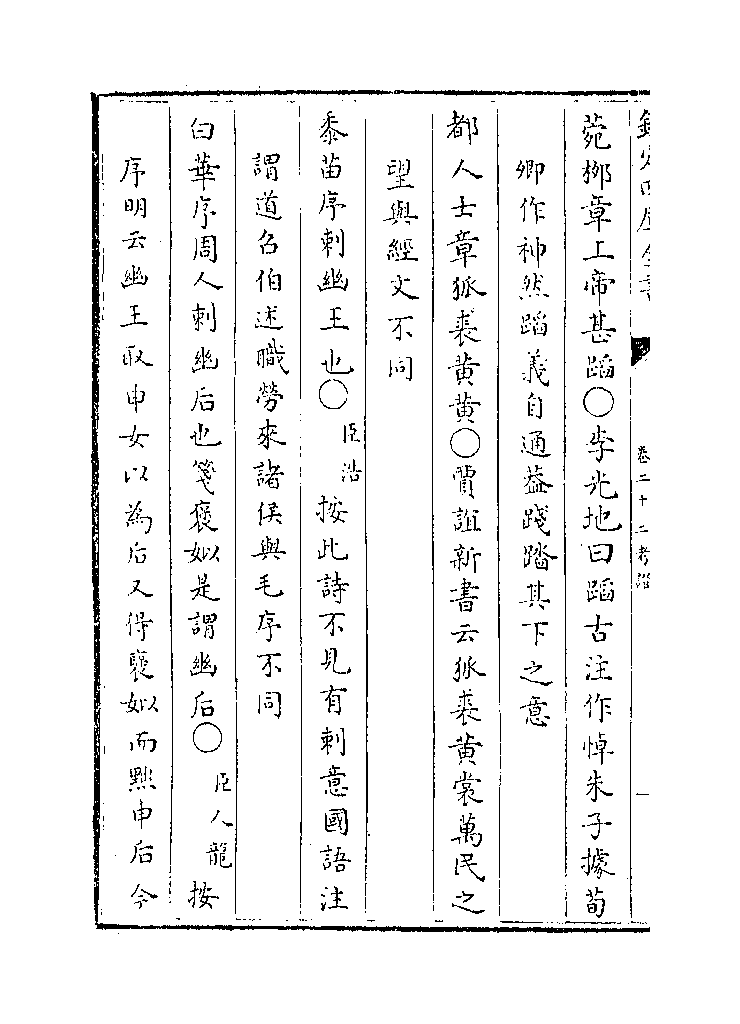 欽定四庫全書
卷二十二考證
菀栁章上帝甚蹈○李光地曰蹈古注作悼朱子據荀
卿作神然蹈義自通葢踐踏其下之意
都人士章狐裘黄黄○賈誼新書云狐裘黄裳萬民之
望與經文不同
黍苗序刺幽王也○臣浩按此詩不見有刺意國語注
謂道召伯述職勞來諸侯與毛序不同
白華序周人刺幽后也箋褒姒是謂幽后○臣人龍按
序明云幽王取申女以為后又得褒姒而黜申后今